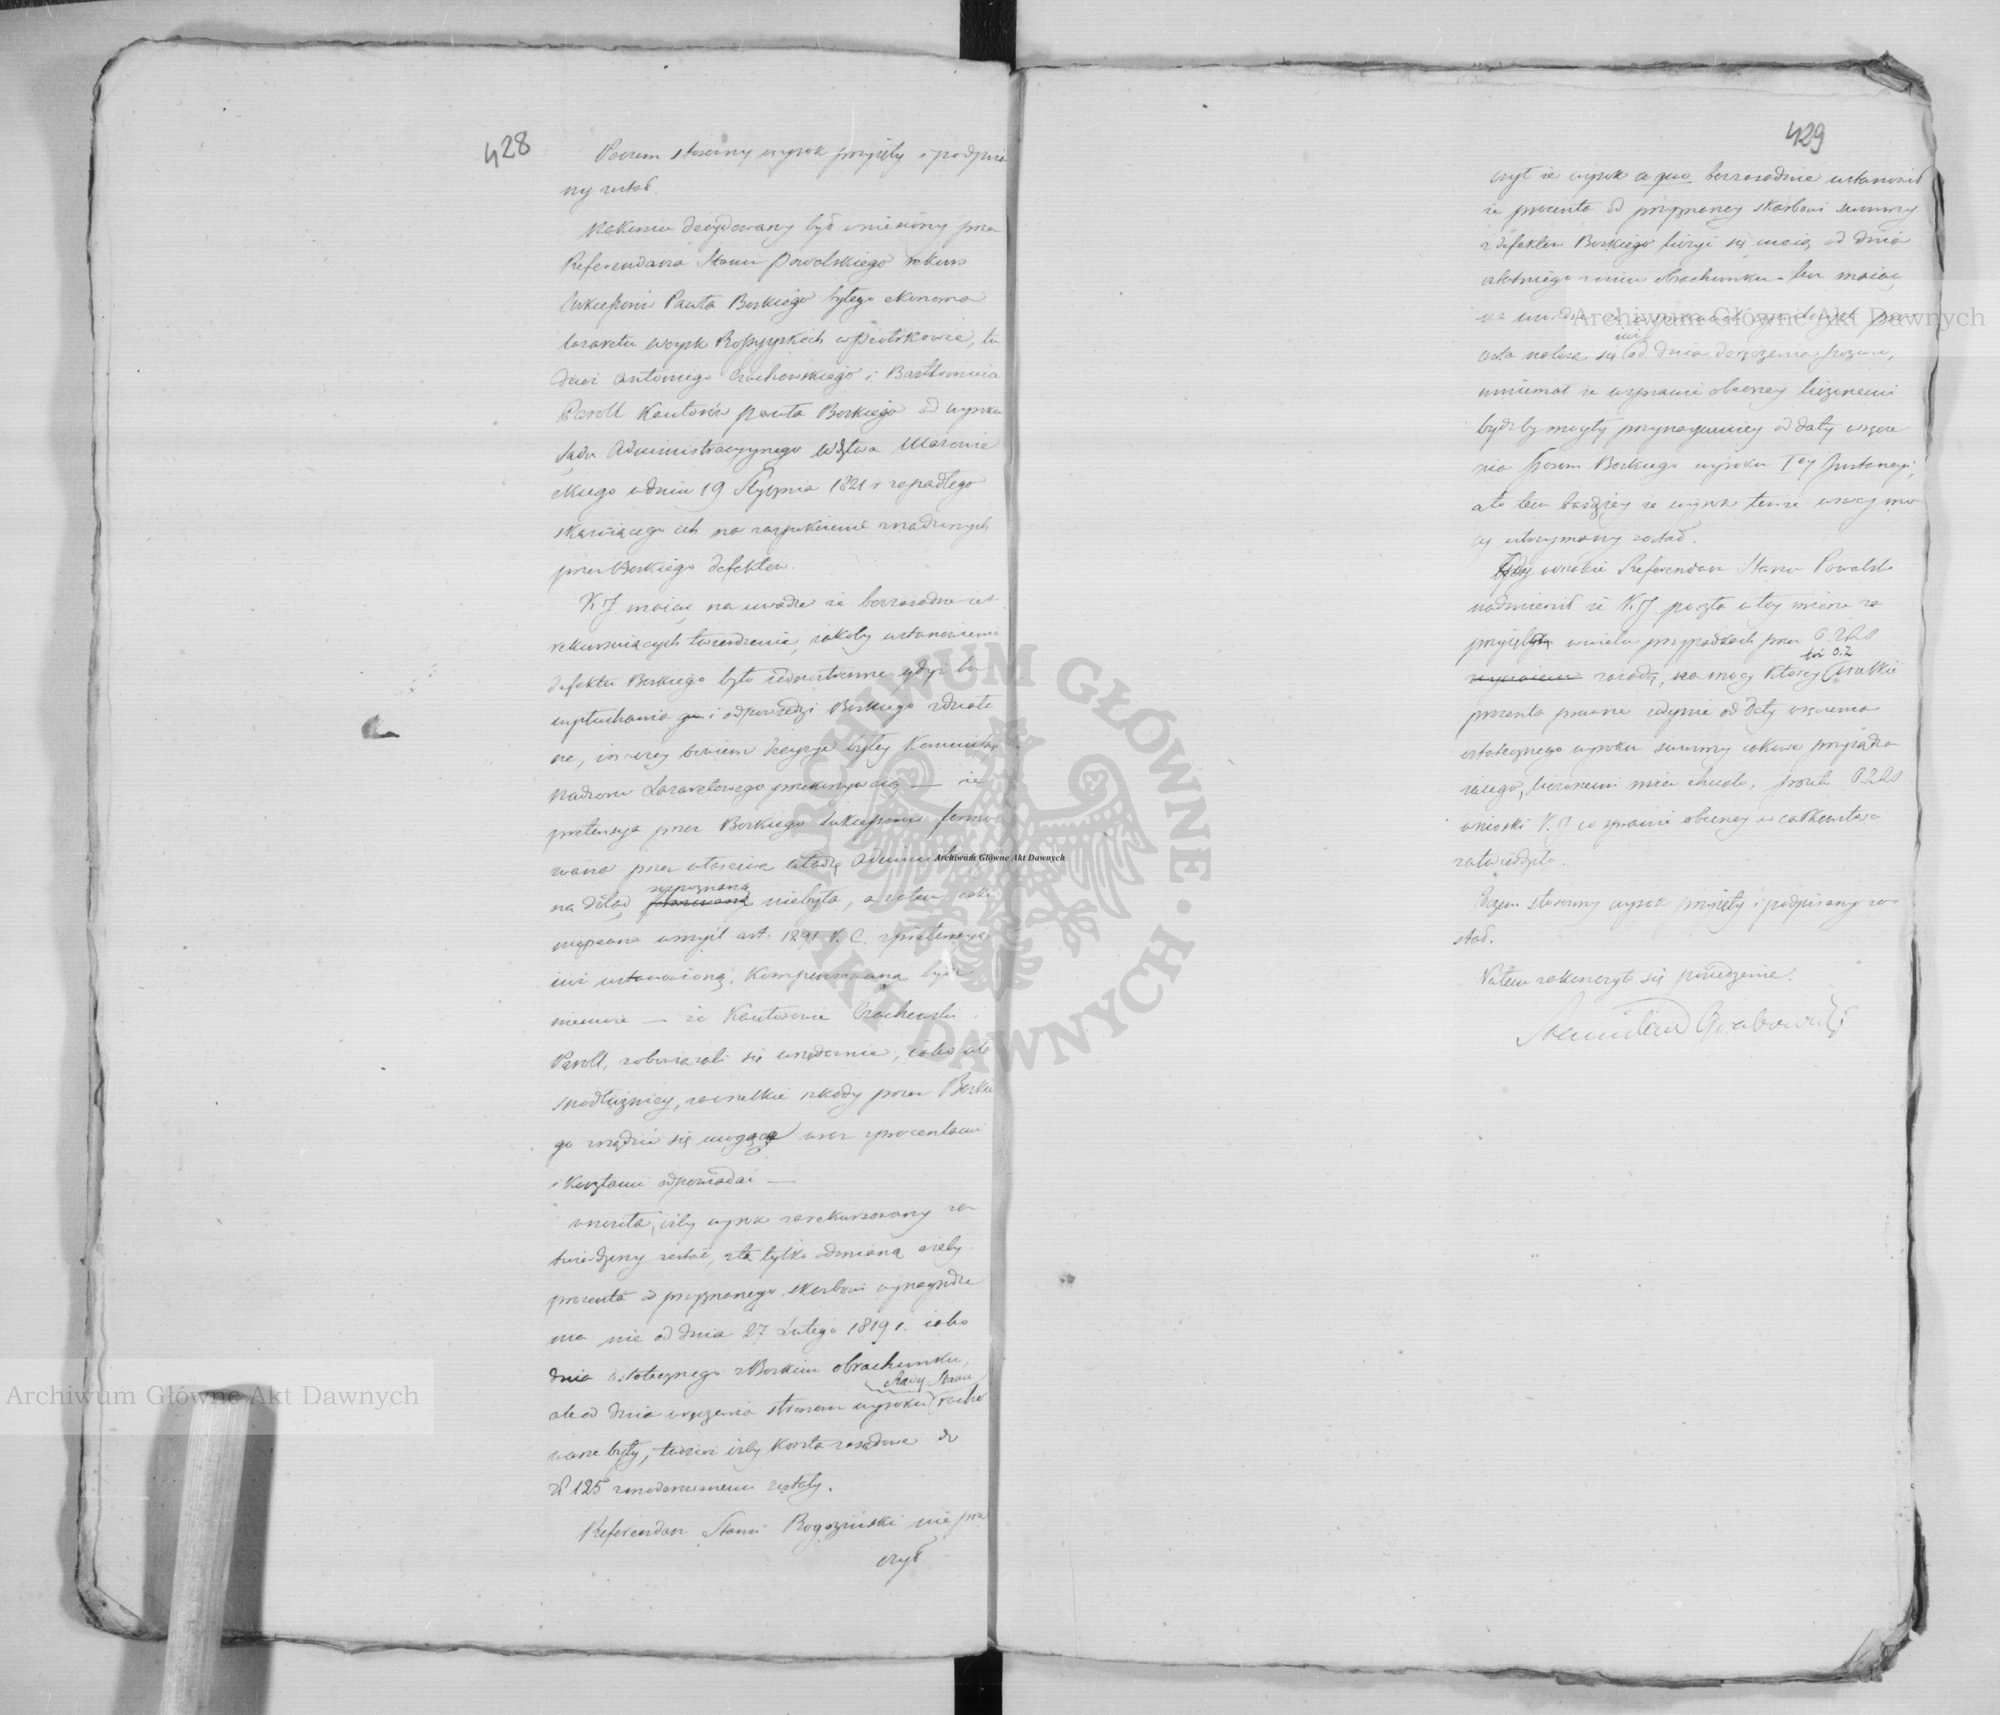 428
Poczem stosowny wyrok przyięty i podpisa
ny został.
Nakoniec decydowany był wniesiony przez
Referendarza Stanu Powalskiego rekurs
Sukcessorów Pawła Borkiego byłego ekonoma
lazaretu woysk Rossyyskich w Piotrkowie, tu
dzież Antoniego Czachowskiego i Bartłomieia
Paroll Kautorów Pawła Borkiego od wyroku
Sądu Administracyynego Wdztwa Mazowie
ckiego w dniu 19 Stycznia 1821 r zapadłego
skazuiącego ich na zaspokoienie zrządzonych
przez Borkiego defektów.
K. J. maiąc na uwadze że bezzasadne iest
rekurruiących twierdzenie, iakoby ustanowienie
defektu Borkiego było iednostronne gdyż bez
wysłuchania i odpowiedzi Borkiego zdziałane
ne, inaczey bowiem decyzye byłey Kommissyi
Nadzoru Lazaretowego przekonywaią — że
pretensya przez Borkiego Sukcessorów formo
wana przez właściwą władzę Administracyi
na dotąd formowaną rozpoznaną niebyła, a zatem iako
niepewna w myśl art: 1291 K. C. z pretensyą
iuż ustanowioną, kompensowaną bydź
niemoże — że Kautorowie Czachowski i
Paroll, zobowiązali się urzędownie, iako współ
dłużnicy, za wszelkie szkody przez Borkie
go zrządzić się mogące wraz z procentami
i kosztami odpowiadać —
wnosiła, iżby wyrok zarekurrowany za
twierdzony został, z tą tylko odmianą ażeby
procenta od przyznanego skarbowi wynagrodze
nia nie od dnia 27 Lutego 1819 r. iako
dnia ostatecznego z Borkiem obrachunku,
ale od dnia wręczenia stronom wyroku Rady Stanu racho
wane były, tudzież iżby koszta zasądzone do
zł 125 zmoderowanemi zostały.
Referendarz Stanu Rogoziński nie prze
czył
429
czył że wyrok a quo bezzasadnie ustanowił
że procenta od przyznaney skarbowi summy
z defektu Borkiego liczyć się maią od dnia
ostatniego z nim obrachunku — lecz maiąc
na uwadze
centa należą się niż od dnia doręczenia pozwu,
mniemał że w sprawie obecney liczonemi
bydźby mogły przynaymniey od daty wręcze
nia stronom Borkiego wyroku I ey Instancyi,
a to tem bardziey że wyrok tenże w swey mo
cy utrzymany został.
Gdy wszakże Referendarz Stanu Powalski
nadmienił iż K. J. poszła w tey mierze za
przyiętą w wielu przypadkach przez O. Z. R. S.
zasadą, na mocy którey wszelkie
procenta prawne iedynie od daty wręczenia
ostatecznego wyroku summy iakowe przysądza
iącego, liczonemi mieć chciała, przeto O.Z.R.S
wnioski K. J. w sprawie obecney w całkowitości
zatwierdziło.
Poczem stosowny wyrok przyięty i podpisany zo
stał.
Na tem zakończyło się posiedzenie.
Stanisław Grabowski
Archiwum Główne Akt Dawnych
Archiwum Główne Akt Dawnych
Archiwum Główne Akt Dawnych
ARCHIWUM GŁÓWNE · AKT DAWNYCH ·